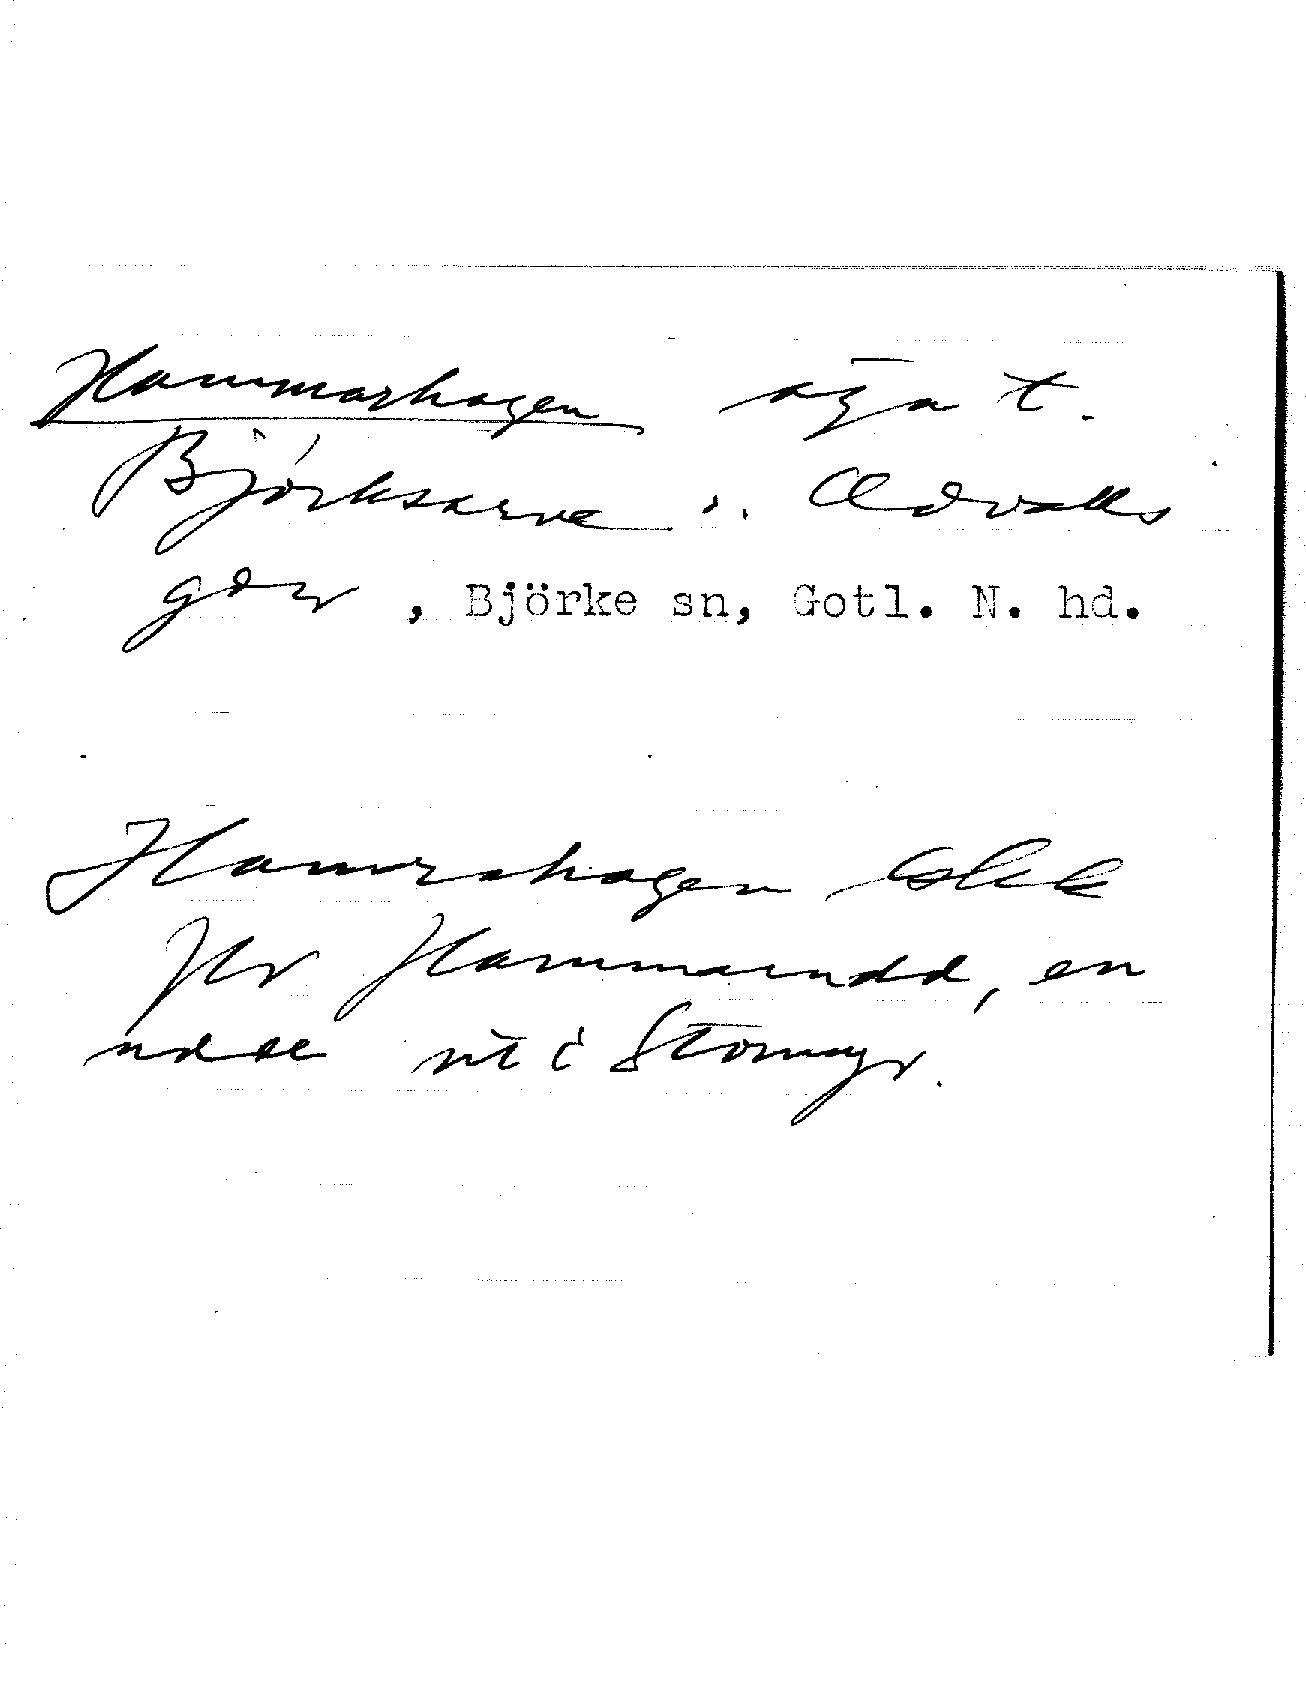 Hammarhagen äga t.
Björksarve i Advalls
gör, Björke sn, Gotl. N. hd.
Hamrahagen
Hammarudd, en
udde ut i Stormyr.